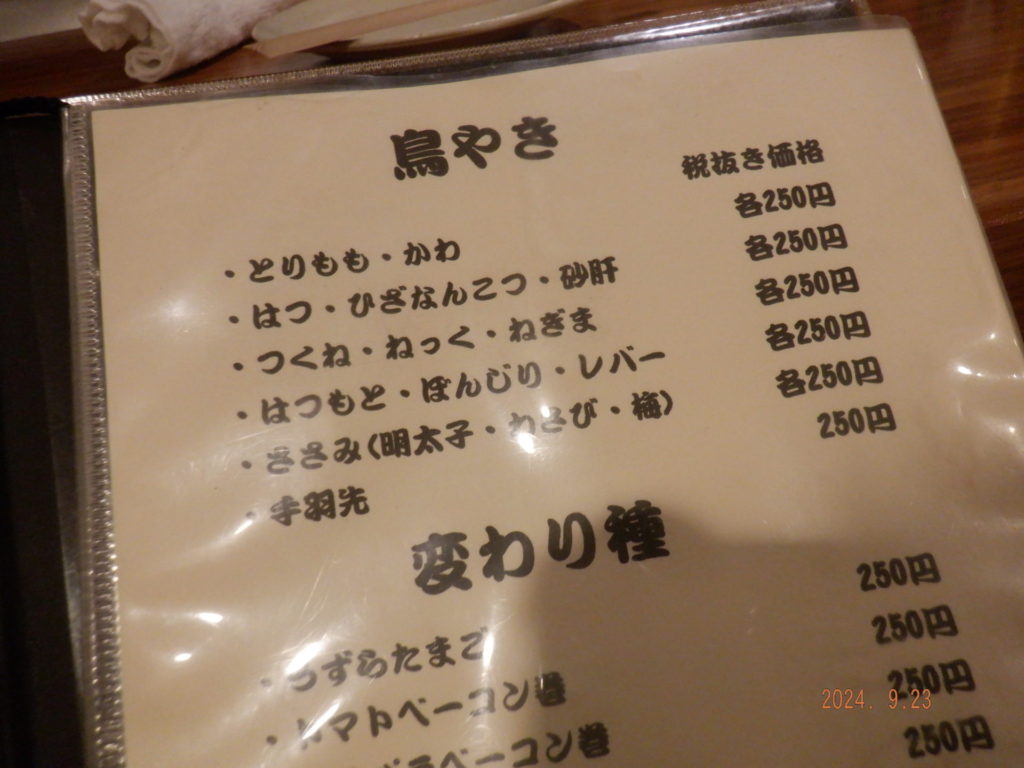 鳥やき
税抜き価格
・とりもも・かわ 各250円
・はつ・ひざなんこつ・砂肝 各250円
・つくね・ねっく・ねぎま 各250円
・はつもと・ぼんじり・レバー 各250円
・ささみ(明太子・わさび・梅) 各250円
・手羽先 250円
変わり種
・うずらたまご 250円
・トマトベーコン巻 250円
ベーコン巻 250円
250円
2024. 9.23